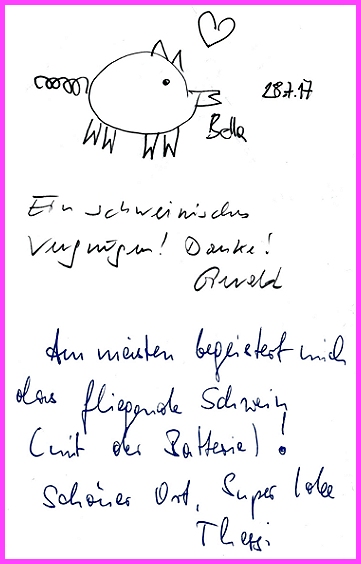 28.7.17
Bella
Ein schweinisches
Vergnügen! Danke!
Am meisten begeistert mich
das fliegende Schwein
(mit der Batterie)!
Schöner Ort, Super Idee